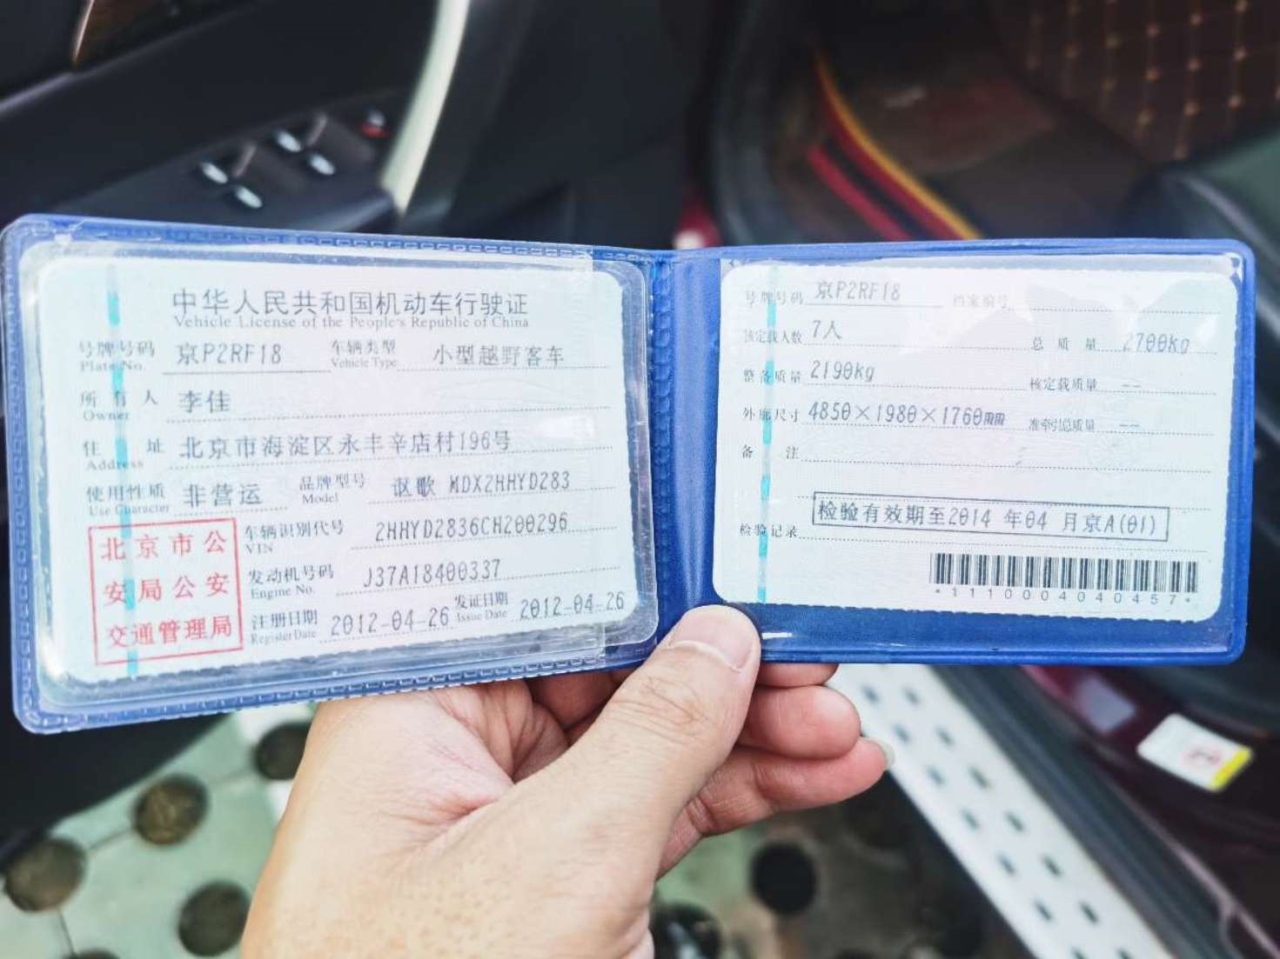 中华人民共和国机动车行驶证
Vehicle License of the People's Republic of China
号牌号码 京P2RF18 车辆类型 小型越野客车
Plate No. Vehicle Type
所有人 李佳
Owner
住址 北京市海淀区永丰辛店村196号
Address
使用性质 非营运 品牌型号 讴歌 MDX2HHYD283
Use Character Model
北京市公
安局公安
交通管理局
车辆识别代号 2HHYD2836CH200296
VIN
发动机号码 J37A18400337
Engine No.
注册日期 2012-04-26 发证日期 2012-04-26
Register Date Issue Date
号牌号码 京P2RF18 档案编号
核定载人数 7人 总质量 2700kg
整备质量 2190kg 核定载质量 --
外廓尺寸 4850×1980×1760mm 准牵引总质量 --
备注
检验记录 检验有效期至2014 年04 月京A(01)
*1110004040457*